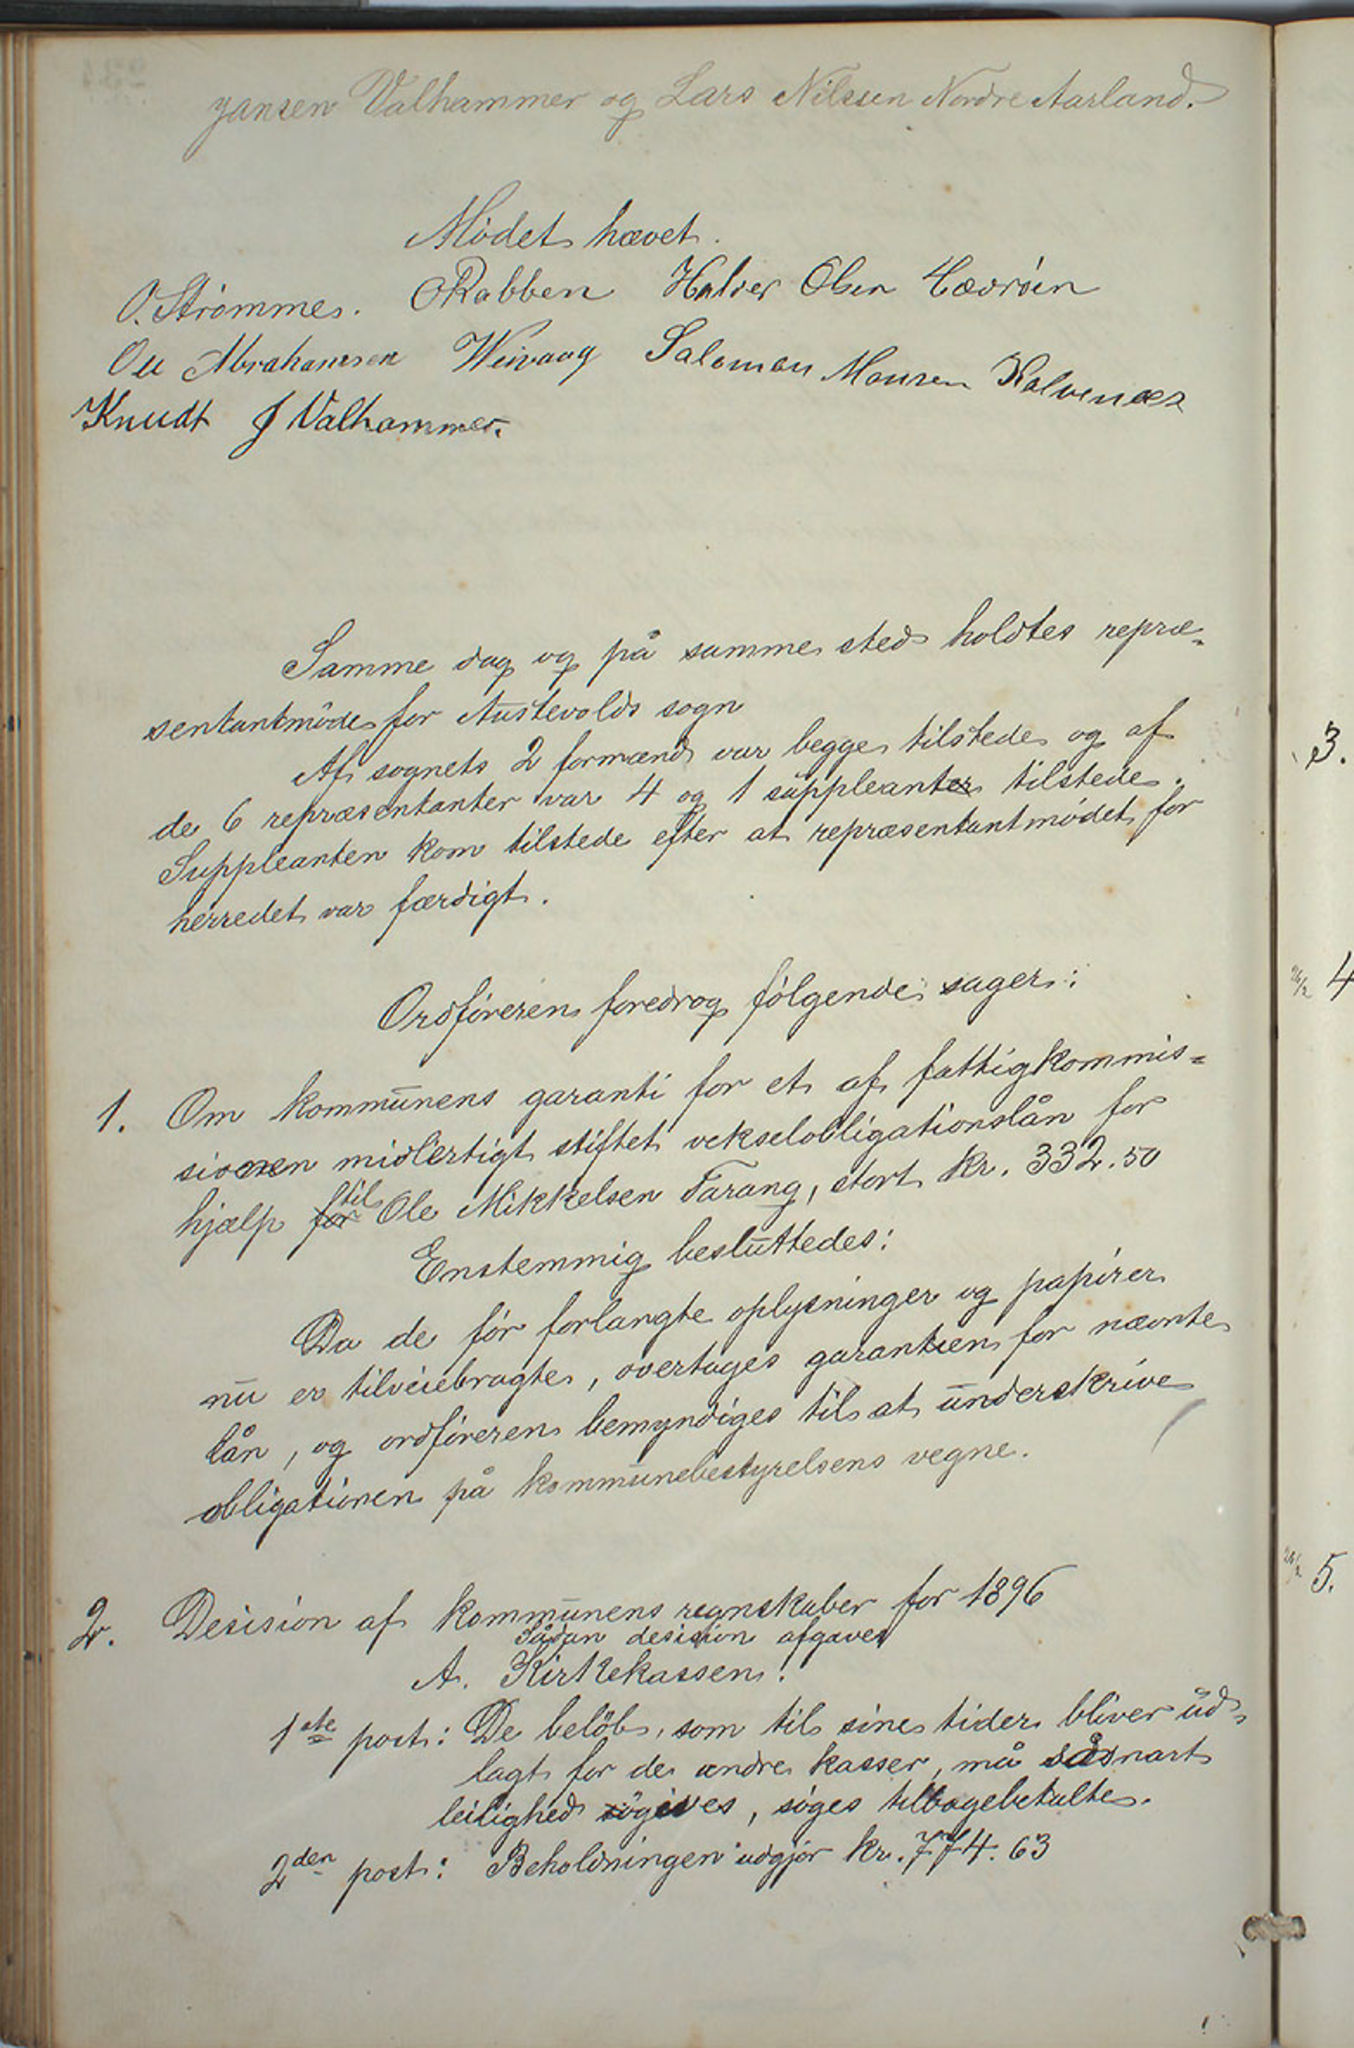 jansen Valhammer og Lars Nilssen Nordre Aarland.
Mödet hævet.
O. Strømmes. O Rabben Halver Olsen Hævröen
Ole Abrahamsen Weivaag Salomon Monsen Kalvenæs
Knudt J Valhammer.
Samme dag og på samme sted holdtes repræ-
sentantmöde for Austevolds sogn
Af sognets 2 formænd var begge tilstede og af
de 6 repræsentanter var 4 og 1 suppleanter tilstede.
Suppleanten kom tilstede efter at repræsentantmödet for
herredet var færdigt.
Ordföreren foredrog fölgende sager:
1. Om kommunens garanti for et af fattigkommis-
sionen midlertigt stiftet vekselobligationslån for
hjælp for til Ole Mikkelsen Tarang, stort kr. 332.50
Enstemmig besluttedes:
Da de för forlangte oplysninger og papirer
nu er tilveiebragte, overtages garantien for nævnte
lån, og ordföreren bemyndiges til at underskrive
obligationen på kommunebestyrelsens vegne.
2. Desision af kommunens regnskaber for 1896
Sådan desision afgaves
A. Kirkekassen:
1ste post: De belöb, som til sine tider bliver ud-
lagt for de andre kasser, må såsnart
leilighed gives, söges tilbagebetalte.
2den post: Beholdningen udgjör kr. 774.63
3.
26/2 4
26/2 5.